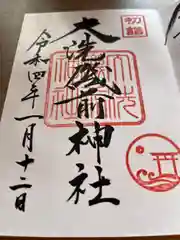 初詣
大洗磯前神社
令和四年一月十二日